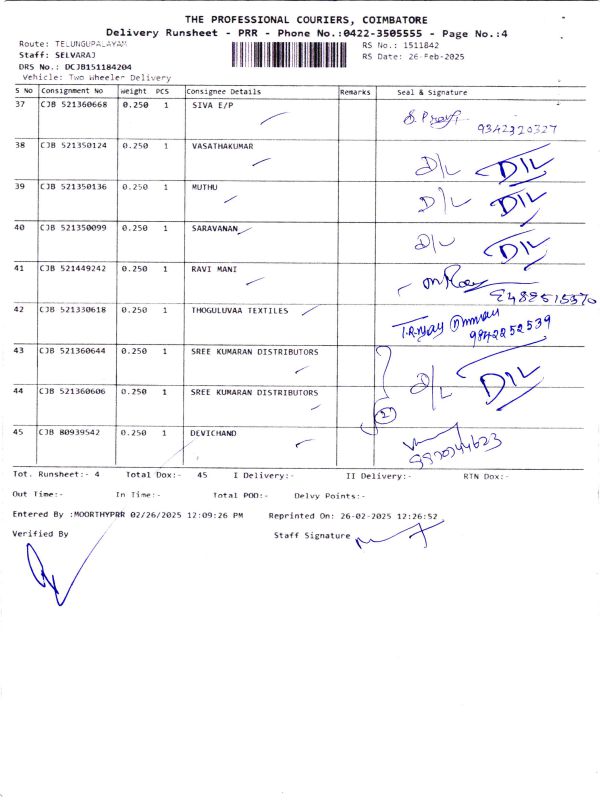 THE PROFESSIONAL COURIERS, COIMBATORE
Delivery Runsheet - PRR - Phone No.:0422-3505555 - Page No.:4
Route: TELUNGUPALAYAM RS No.: 1511842
Staff: SELVARAJ RS Date: 26-Feb-2025
DRS No.: DCJB151184204
Vehicle: Two Wheeler Delivery
S No Consignment No Weight PCS Consignee Details Remarks Seal & Signature
37 CJB 521360668 0.250 1 SIVA E/P
9342320327
38 CJB 521350124 0.250 1 VASATHAKUMAR D/L DIL
39 CJB 521350136 0.250 1 MUTHU D/L DIL
40 CJB 521350099 0.250 1 SARAVANAN D/L DIL
41 CJB 521449242 0.250 1 RAVI MANI
42 CJB 521330618 0.250 1 THOGULUVAA TEXTILES
9842252539
43 CJB 521360644 0.250 1 SREE KUMARAN DISTRIBUTORS
D/L DIL
44 CJB 521360606 0.250 1 SREE KUMARAN DISTRIBUTORS
2
45 CJB 80939542 0.250 1 DEVICHAND
Tot. Runsheet:- 4 Total Dox:- 45 I Delivery:- II Delivery:- RTN Dox:-
Out Time:- In Time:- Total POD:- Delvy Points:-
Entered By :MOORTHYPRR 02/26/2025 12:09:26 PM Reprinted On: 26-02-2025 12:26:52
Verified By Staff Signature